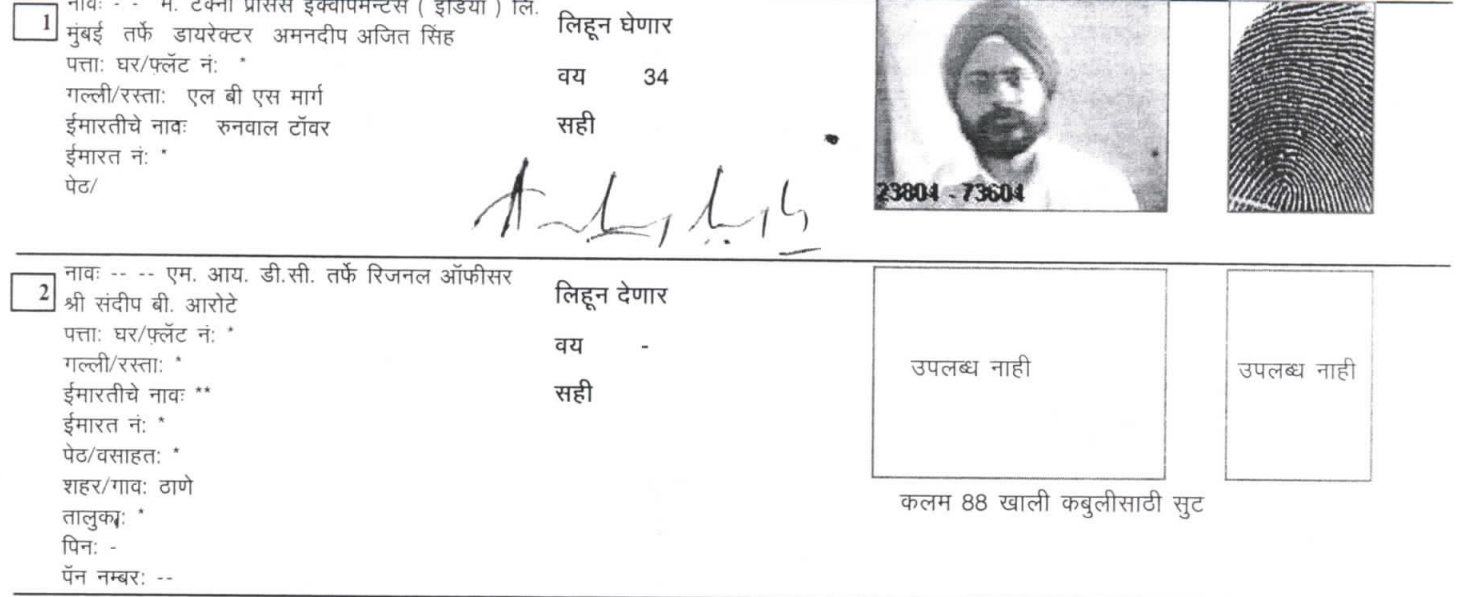 1
नावः - - मे. टेक्नो प्रोसेस इक्वीपमेन्टस ( इंडिया ) लि.
मुंबई तर्फे डायरेक्टर अमनदीप अजित सिंह
पत्ताः घर/फ्लॅट नं: *
गल्ली/रस्ताः एल बी एस मार्ग
ईमारतीचे नावः रुनवाल टॉवर
ईमारत नं: *
पेठ/
लिहून घेणार
वय 34
सही
23804 - 73604
2
नावः -- -- एम. आय. डी.सी. तर्फे रिजनल ऑफीसर
श्री संदीप बी. आरोटे
पत्ताः घर/फ्लॅट नं: *
गल्ली/रस्ताः *
ईमारतीचे नावः **
ईमारत नं: *
पेठ/वसाहत: *
शहर/गाव: ठाणे
तालुका: *
पिन: -
पॅन नम्बर: --
लिहून देणार
वय -
सही
उपलब्ध नाही
उपलब्ध नाही
कलम 88 खाली कबुलीसाठी सुट